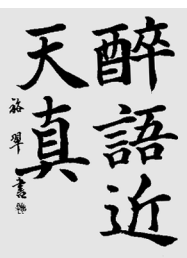 醉語近
天真
裕翠書